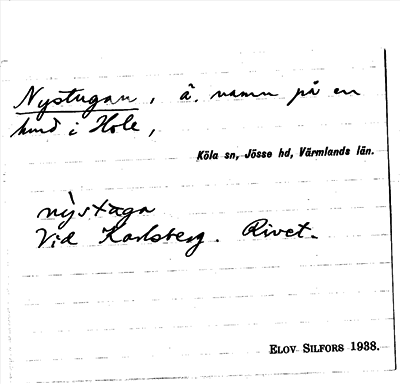 Nystugan, ä. namn på en
lund i Hole,
Köla sn, Jösse hd, Värmlands län.
nỳstaga
Vid Karlsberg. Rivet.
ELOV SILFORS 1938.